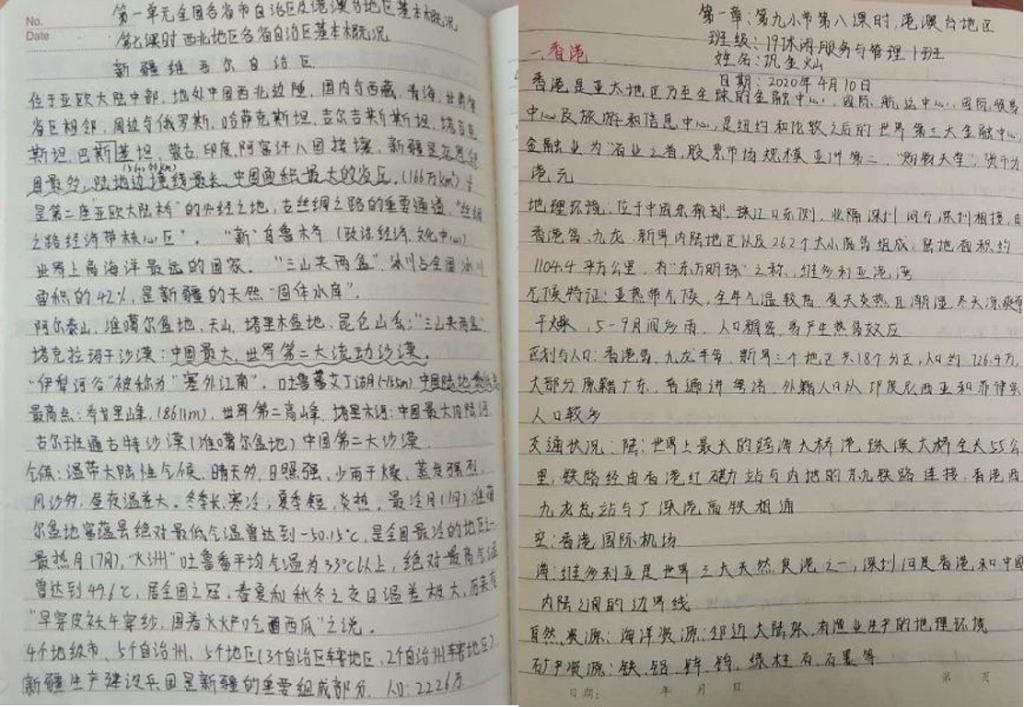 No.
Date
第一单元全国各省市自治区及港澳台地区基本概况
第七课时 西北地区各省自治区基本概况
新疆维吾尔自治区
位于亚欧大陆中部,地处中国西北边陲,国内与西藏、青海、甘肃等
省区相邻,周边与俄罗斯、哈萨克斯坦、吉尔吉斯斯坦、塔吉克
斯坦、巴基斯坦、蒙古、印度、阿富汗八国接壤,新疆是
国最多,陆地边境线最长,中国面积最大的省区。(166万km²)
是第二座"亚欧大陆桥"的必经之地,古丝绸之路的重要通道,"丝绸
之路经济带核心区"。"新"乌鲁木齐(政治经济、文化中心)
世界上离海洋最远的国家。"三山夹两盆"冰川占全国冰川
面积的42%,是新疆的天然"固体水库"。
阿尔泰山、准噶尔盆地、天山、塔里木盆地、昆仑山系:"三山夹两盆"
塔克拉玛干沙漠:中国最大,世界第二大流动沙漠。
"伊犁河谷"被称为"塞外江南"。吐鲁番艾丁湖(-155m)中国陆地
最高点:乔戈里峰,(8611m),世界第二高峰,塔里木河:中国最大内陆河
古尔班通古特沙漠(准噶尔盆地)中国第二大沙漠
气候:温带大陆性气候,晴天多,日照强,少雨干燥,蒸发强烈,
风沙多,昼夜温差大。冬季长、寒冷;夏季短、炎热。最冷月(1月),准噶
尔盆地富蕴县绝对最低气温曾达到-50.15℃,是全国最冷的地区之一
最热月(7月),"火洲"吐鲁番平均气温为33℃以上,绝对最高气温
曾达到49.6℃,居全国之冠。春夏和秋冬之交日温差极大,历来有
"早穿皮袄午穿纱,围着火炉吃西瓜"之说。
4个地级市、5个自治州、5个地区(3个自治区辖地区、2个自治州辖地区),
新疆生产建设兵团是新疆的重要组成部分。人口:2226万
第一章:第九小节第八课时,港澳台地区
班级:19休闲服务与管理1班
姓名:巩金灿
日期:2020年4月10日
一.香港
香港是亚太地区乃至全球的金融中心、国际航运中心、国际贸易
中心及旅游和信息中心,是纽约和伦敦之后的世界第三大金融中心,
金融业为"百业之首,股票市场规模亚洲第二、"购物天堂",货币为
港元
地理环境:位于中国东南部,珠江口东侧,北隔深圳河与深圳相接,由
香港岛、九龙、新界内陆地区以及262个大小离岛组成,陆地面积约
1104.4平方公里,有"东方明珠"之称,维多利亚港湾
气候特征:亚热带气候,全年气温较高,夏天炎热且潮湿,冬天凉爽而
干燥,5-9月间多雨。人口稠密,易产生热岛效应
区划与人口:香港岛、九龙半岛、新界三个地区共18个分区,人口约726.4万,
大部分原籍广东,普遍讲粤语,外籍人口以印度尼西亚和菲律宾
人口较多
交通状况:陆:世界上最大的跨海大桥港珠澳大桥全长55公
里,铁路经由香港红磡站与内地的京九铁路连接,香港西
九龙总站与广深港高铁相通
空:香港国际机场
海:维多利亚是世界三大天然良港之一,深圳河是香港和中国
内陆之间的边界线
自然资源:海洋资源:邻近大陆架,有渔业生产的地理环境
矿产资源:铁、铝、锌、钨、绿柱石、石墨等
日期: 年 月 日
第 页